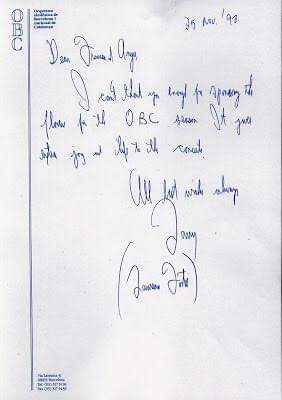 OBC
Orquestra
simfònica de
Barcelona i
nacional de
Catalunya
29 Nov. '98
Dear
I can't thank you enough for sponsoring the
flowers for the OBC season. It gives
extra joy and to the concerts.
All best wishes always
Via Laietana 41
08003 Barcelona